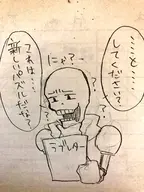 してください？
にゃ？
？
？
これは‥‥
新しいパズルだな？
ラブレター